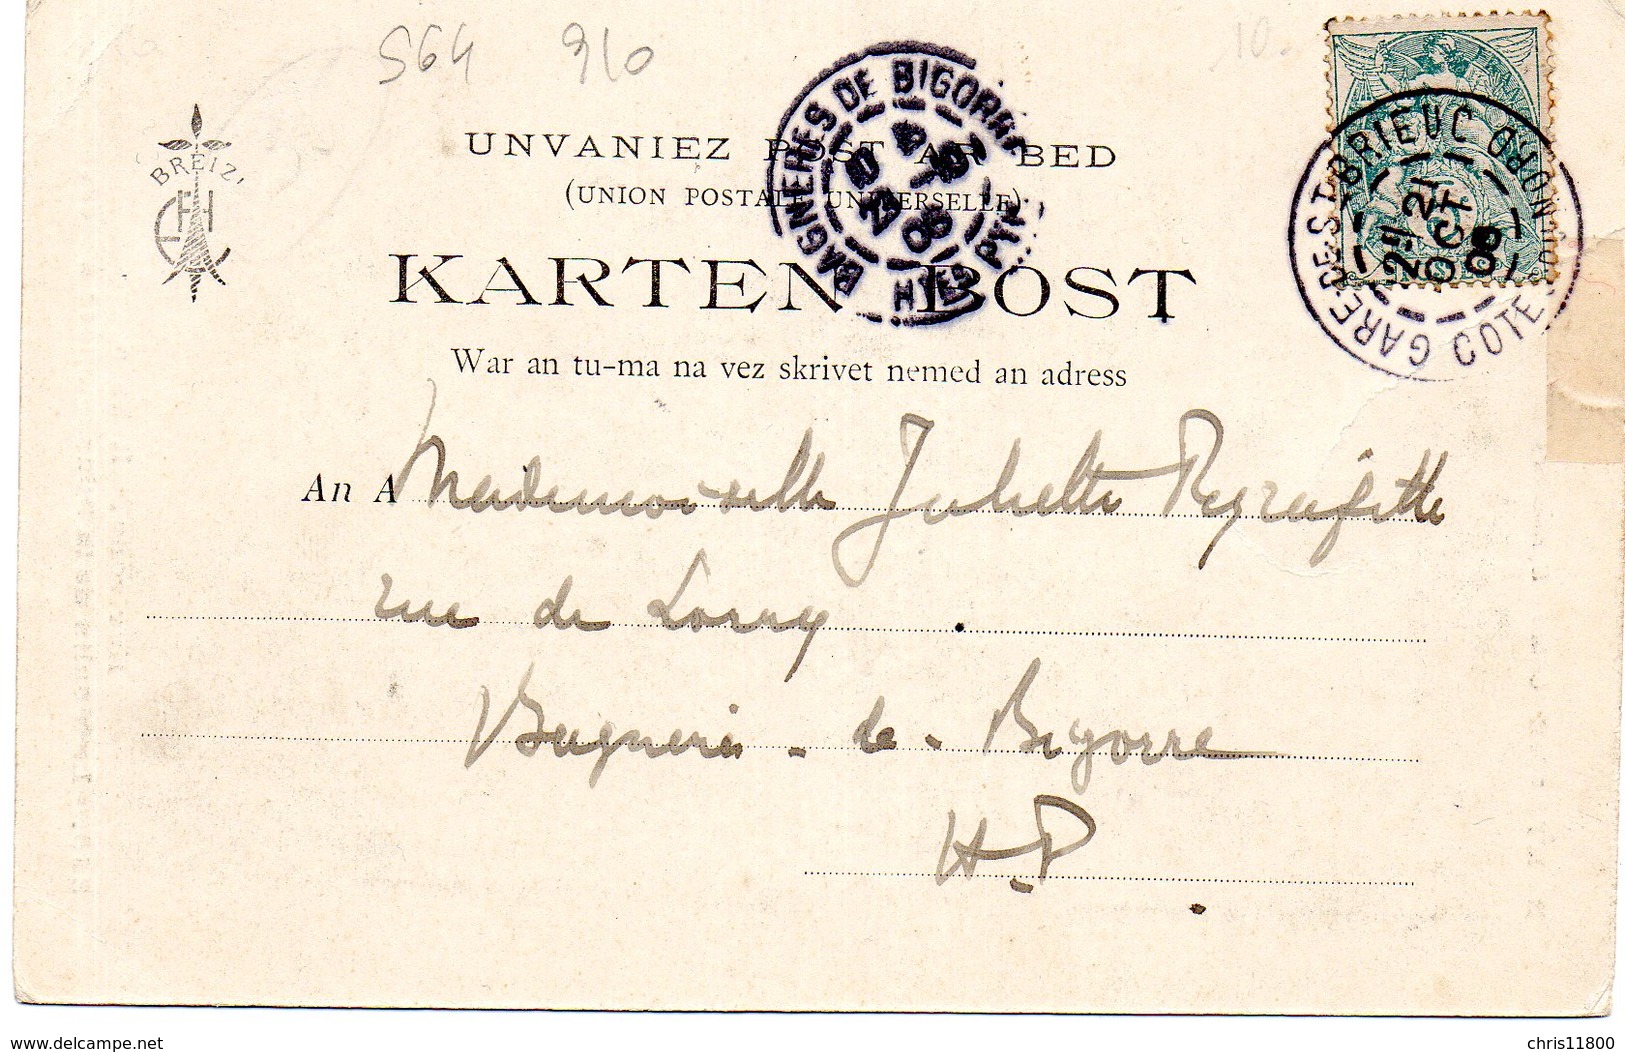 564 910
10.
'BREIZ'
UNVANIEZ POST AR BED
(UNION POSTALE UNIVERSELLE)
KARTEN BOST
War an tu-ma na vez skrivet nemed an adress
BAGNERES DE BIGORRE
GARE-DE-ST-BRIEUC COTE NORD
21 OCT 00
An A Mademoiselle Juliette
rue de Lorry
Bagnères-de-Bigorre
H.P.
delcampe.net
chris11800